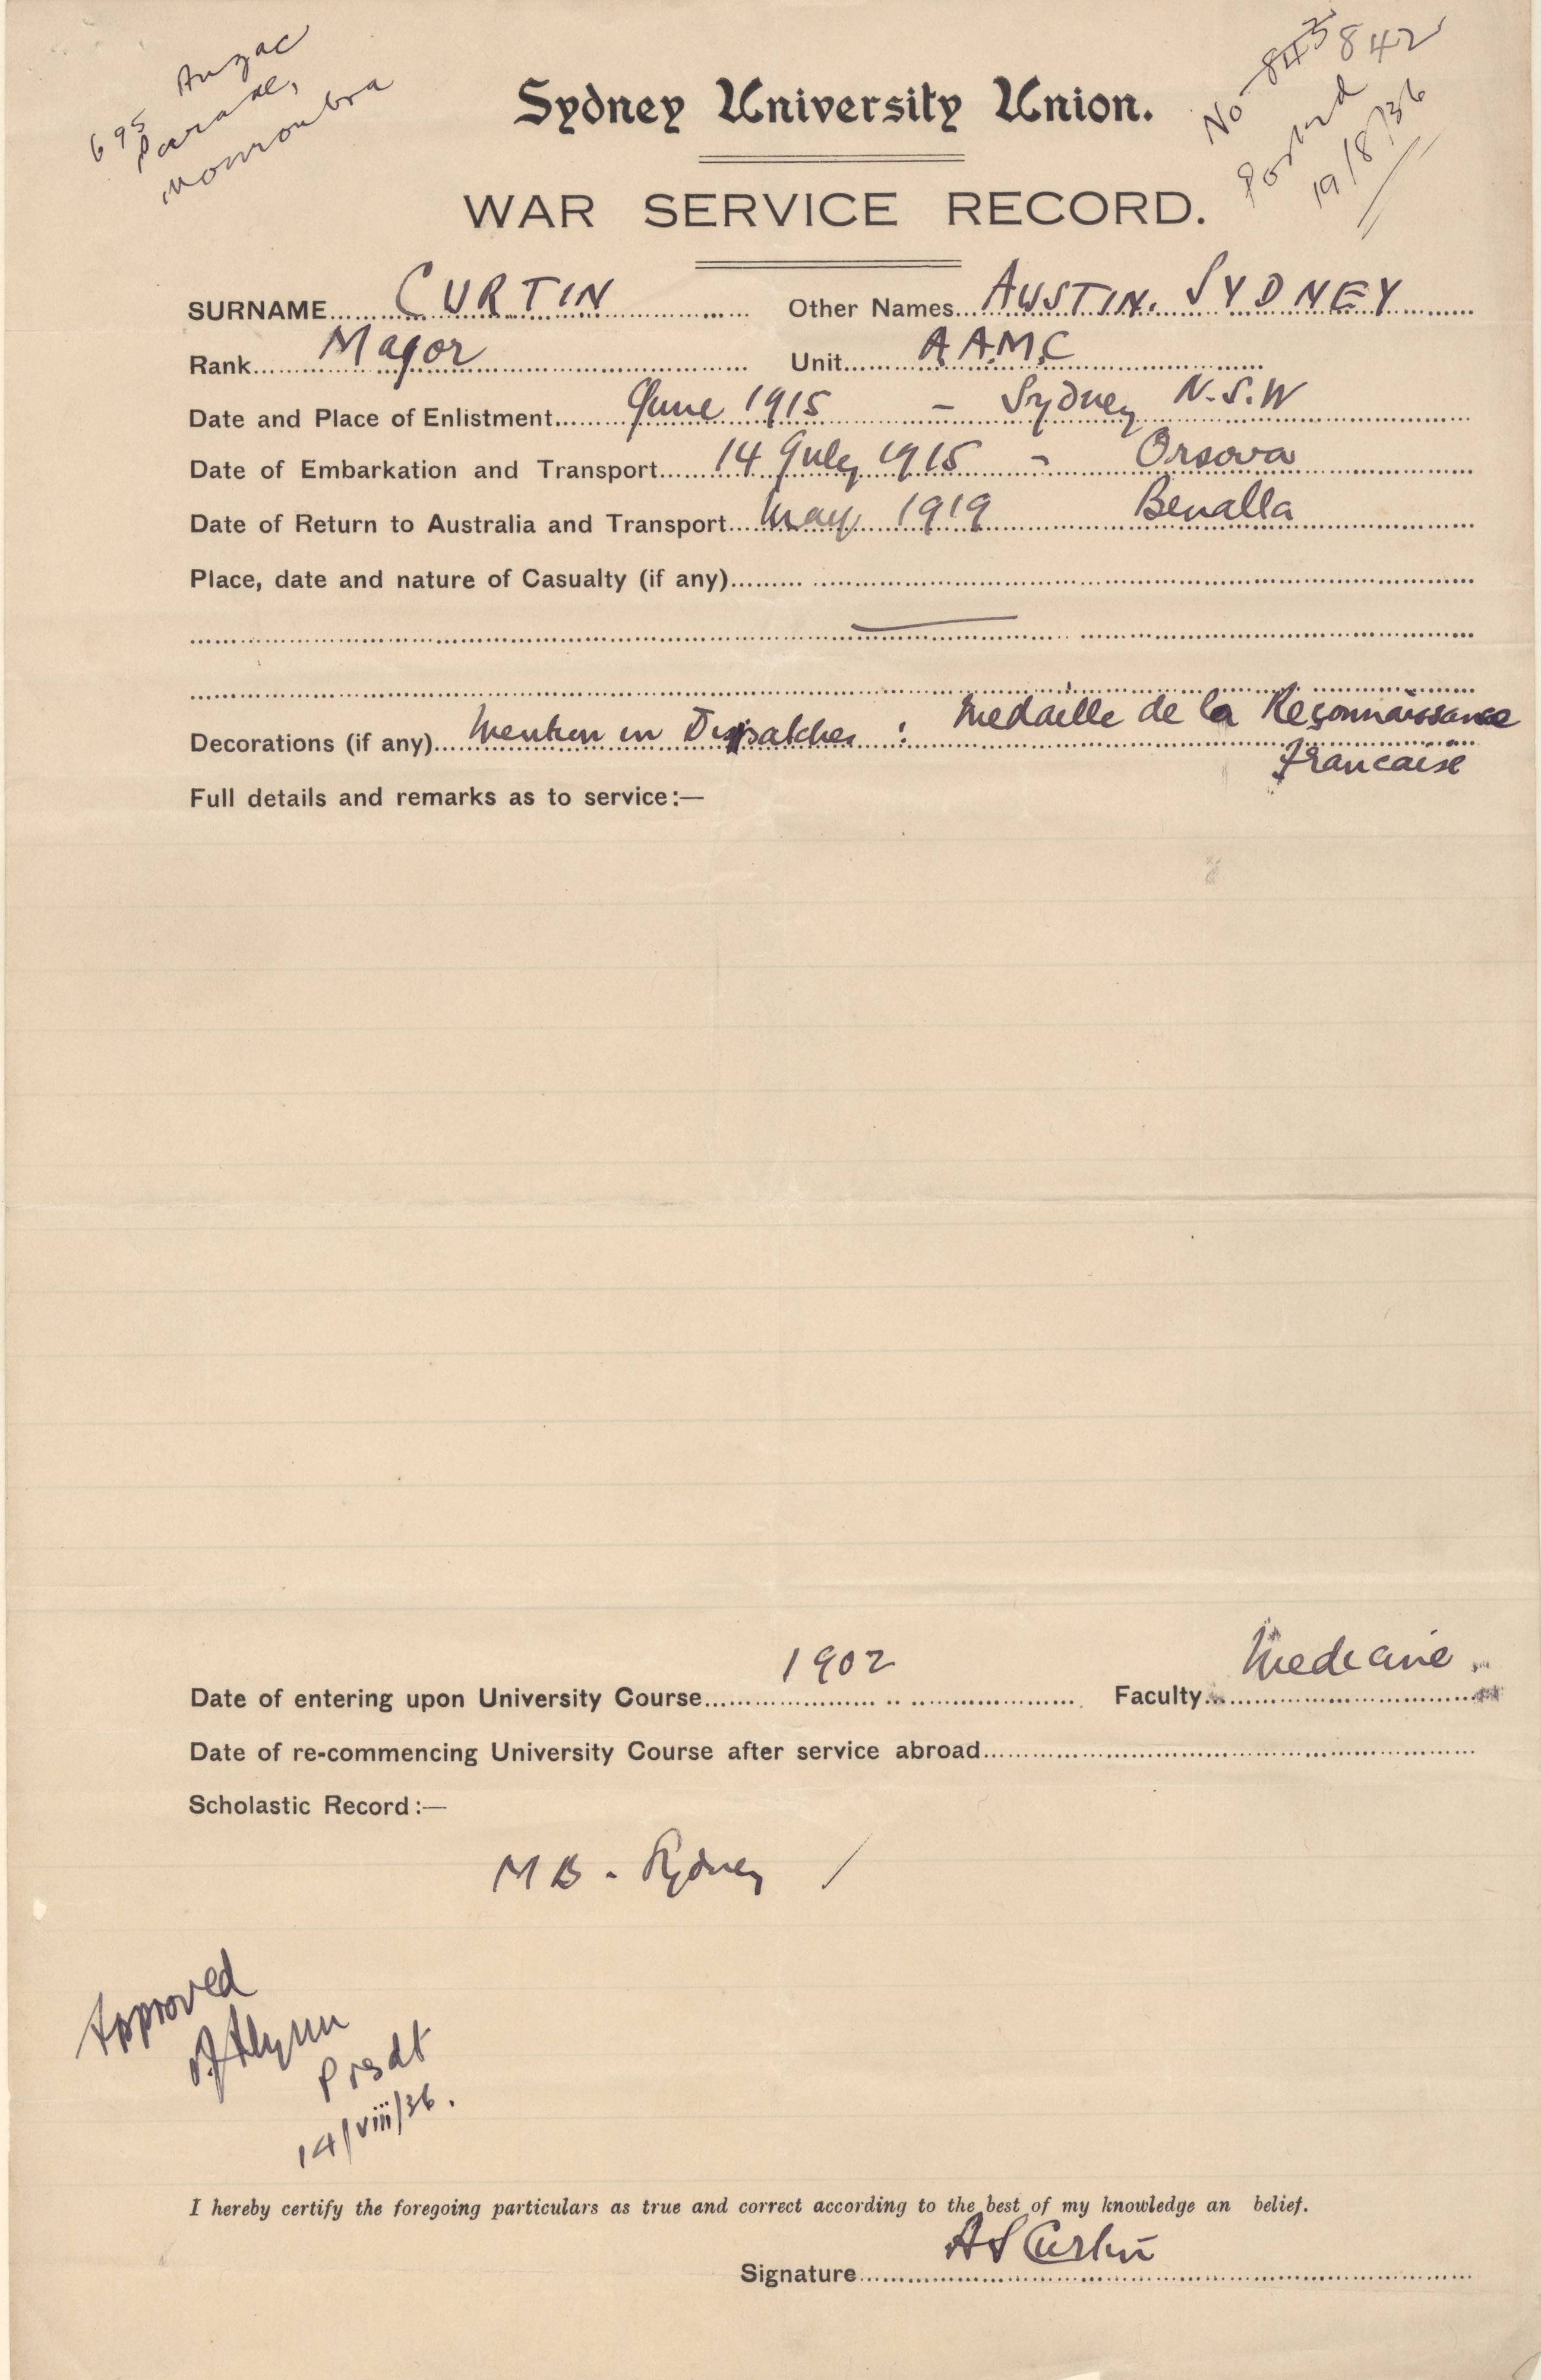 695 Anzac
Parade,
Marroubra
No 843 842
Posted
19/8/36
Sydney University Union.
WAR SERVICE RECORD.
SURNAME CURTIN Other Names AUSTIN. SYDNEY
Rank Major Unit A.A.M.C
Date and Place of Enlistment June 1915 - Sydney N.S.W
Date of Embarkation and Transport 14 July 1915 - Orsova
Date of Return to Australia and Transport May 1919 Benalla
Place, date and nature of Casualty (if any)
Decorations (if any) Mention in Dispatches : Medaille de la Reçonnaissance
Francaise
Full details and remarks as to service:—
Date of entering upon University Course 1902 Faculty Medicine
Date of re-commencing University Course after service abroad
Scholastic Record:—
M B - Sydney /
Approved
Flynn
Presdt
14/viii/36.
I hereby certify the foregoing particulars as true and correct according to the best of my knowledge an belief.
Signature A S Curtin